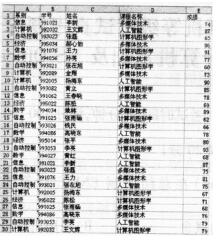 系别 学号 姓名 课程名称 成绩
信息 991021 李新 多媒体技术 74
计算机 992032 王文辉 人工智能 87
自动控制 993023 张磊 计算机图形学 65
经济 995034 郝心怡 多媒体技术
信息 991076 王力 计算机图形学
数学 994056 孙英 多媒体技术
自动控制 993021 张在旭 计算机图形学
计算机 992089 金翔 多媒体技术
计算机 992005 扬海东 人工智能
自动控制 993082 黄立 计算机图形学
信息 991062 王春晓 多媒体技术
经济 995022 陈松 人工智能
数学 994034 姚林 多媒体技术
信息 991025 张雨涵 计算机图形学
自动控制 993026 钱民 多媒体技术
数学 994086 高晓东 人工智能
经济 995014 张平 多媒体技术
自动控制 993053 李英 计算机图形学
数学 994027 黄红 人工智能
信息 991021 李新 人工智能
自动控制 993023 张磊 多媒体技术
信息 991076 王力 人工智能
自动控制 993021 张在旭 人工智能
计算机 992005 扬海东 计算机图形学
经济 995022 陈松 计算机图形学
信息 991025 张雨涵 多媒体技术
数学 994086 高晓东 多媒体技术 76
自动控制 993053 李英 人工智能 79
计算机 992032 王文辉 计算机图形学 79